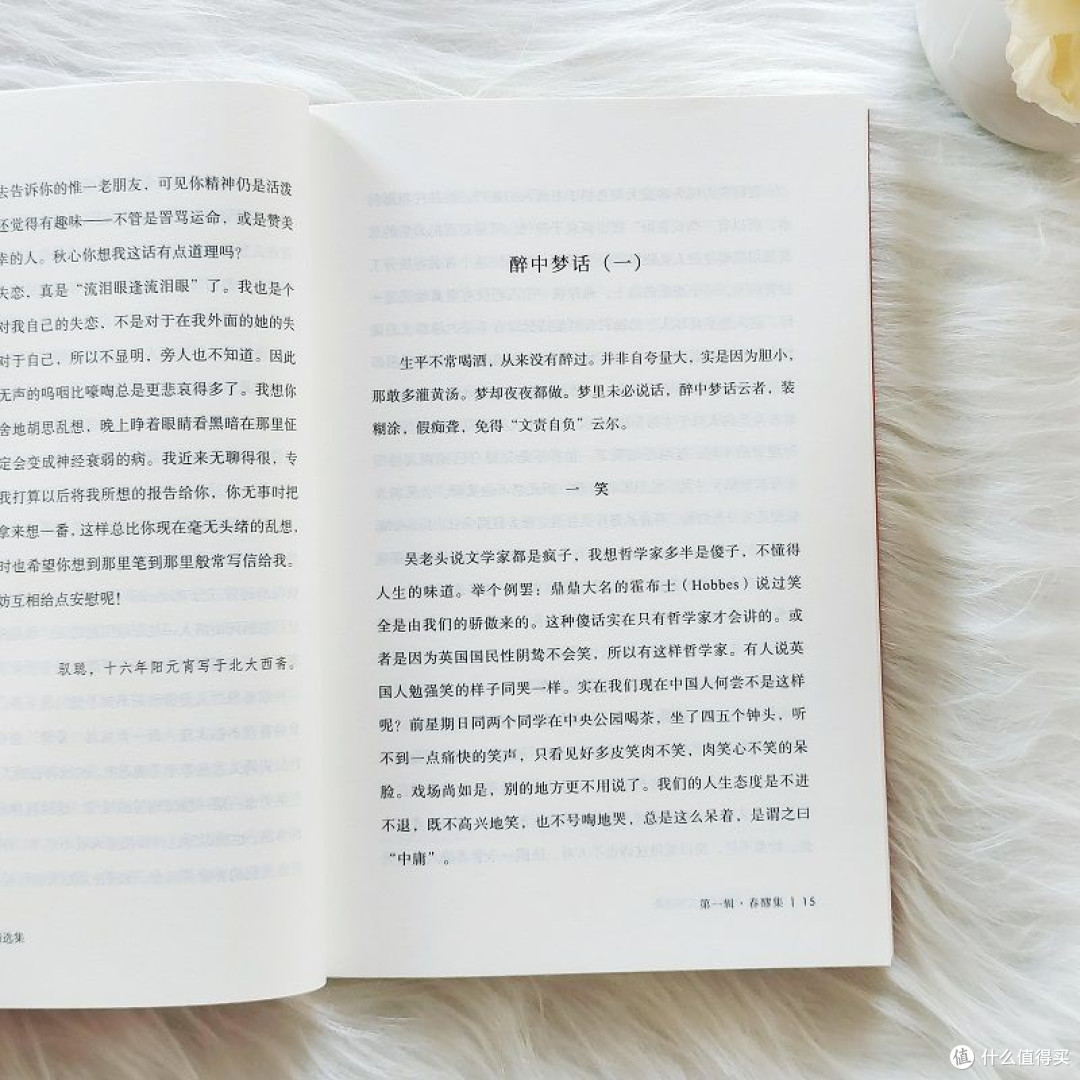 去告诉你的惟一老朋友，可见你精神仍是活泼
还觉得有趣味——不管是詈骂运命，或是赞美
幸的人。秋心你想我这话有点道理吗？
失恋，真是“流泪眼逢流泪眼”了。我也是个
对我自己的失恋，不是对于在我外面的她的失
对于自己，所以不显明，旁人也不知道。因此
无声的呜咽比嚎啕总是更悲哀得多了。我想你
舍地胡思乱想，晚上睁着眼睛看黑暗在那里怔
定会变成神经衰弱的病。我近来无聊得很，专
我打算以后将我所想的报告给你，你无事时把
拿来想一番，这样总比你现在毫无头绪的乱想，
时也希望你想到那里笔到那里般常写信给我。
妨互相给点安慰呢！
驭聪，十六年阳元宵写于北大西斋。
选集
醉中梦话（一）
生平不常喝酒，从来没有醉过。并非自夸量大，实是因为胆小，
那敢多灌黄汤。梦却夜夜都做。梦里未必说话，醉中梦话云者，装
糊涂，假痴聋，免得“文责自负”云尔。
一 笑
吴老头说文学家都是疯子，我想哲学家多半是傻子，不懂得
人生的味道。举个例罢：鼎鼎大名的霍布士（Hobbes）说过笑
全是由我们的骄傲来的。这种傻话实在只有哲学家才会讲的。或
者是因为英国国民性阴鸷不会笑，所以有这样哲学家。有人说英
国人勉强笑的样子同哭一样。实在我们现在中国人何尝不是这样
呢？前星期日同两个同学在中央公园喝茶，坐了四五个钟头，听
不到一点痛快的笑声，只看见好多皮笑肉不笑，肉笑心不笑的呆
脸。戏场尚如是，别的地方更不用说了。我们的人生态度是不进
不退，既不高兴地笑，也不号啕地哭，总是这么呆着，是谓之曰
“中庸”。
第一辑·春醪集 | 15
值 什么值得买